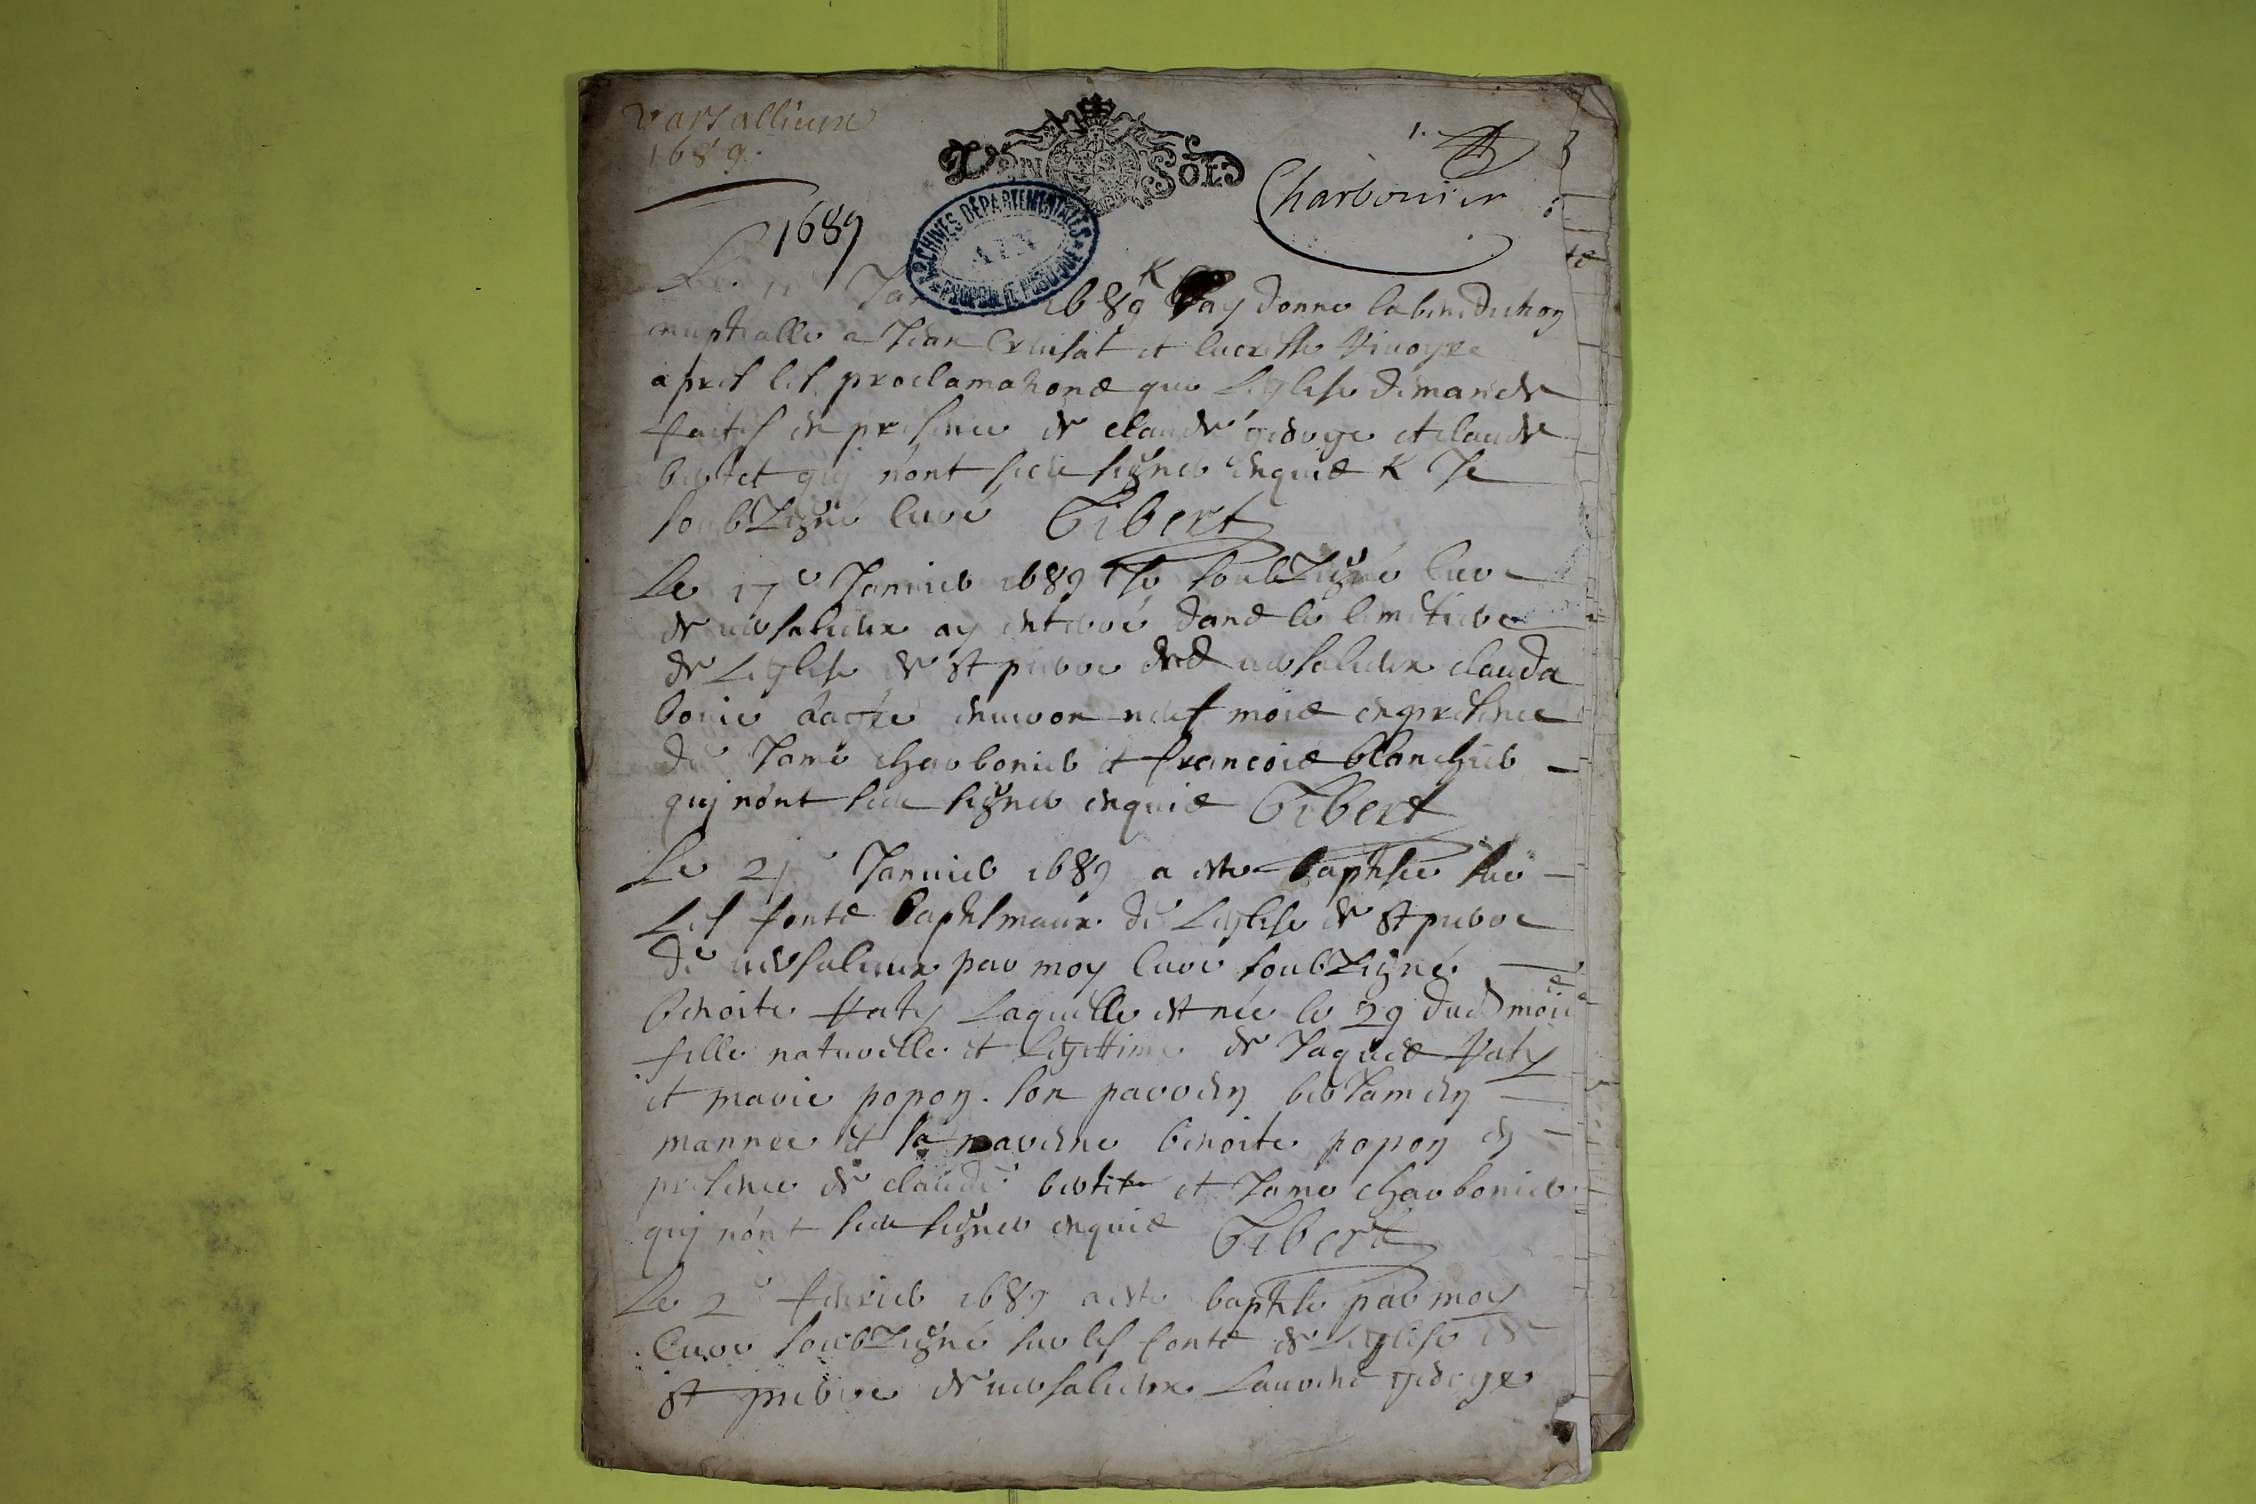 Versallieux
1689.
UN SOL
1.
Charbonier
ARCHIVES DEPARTEMENTALES
AIN
PROPRIETE PUBLIQUE
1689
Le 1689 K J'ay donne la benediction
nuptialle a Jean Cruisat et lucresse
apres les proclamations que Leglise demande
faites en presence de claude george et claude
bertet quj nont sceu signer enquis K Je
soubZigné Curé Gibert
Le 17e Januier 1689 Je soubZigné Cure
de uersalieux ay enterré dans le cimetiere
de Leglise de st pierre dud uersalieux clauda
borié aagée enuiron neuf mois en presence
de Jame charbonier et francois blanchier
quj nont sceu signer enquis Gibert
Le Januier 1689 a este baptisée sur
Les fonts baptismaux de Leglise de st pierre
de uersalieux par moy Curé soubZigné
benoite Laquelle est née le 29 dud mois
fille naturelle et Legittime de Jaques
et marie popon. son parrein
et sa mareine benoite popon en
presence de claude bertet et Jame charbonier
quj nont sceu signer enquis Gibert
Le 2e feurier 1689 a este baptisé par moy
Curé soubZigné sur les fonts de Leglise de
st pierre de uersalieux Laurent george